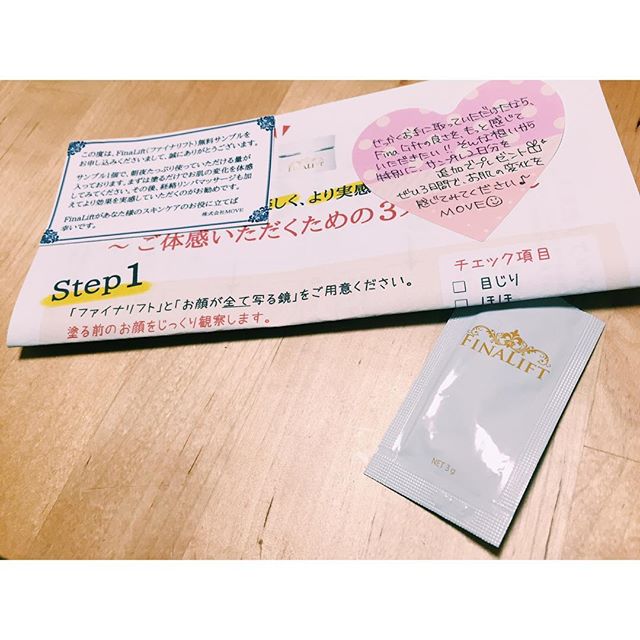 この度は、FinaLift(ファイナリフト)無料サンプルを
お申し込みくださいまして、誠にありがとうございます。
サンプル1個で、朝夜たっぷり使っていただける量が
入っております。まずは塗るだけでお肌の変化を体感
してみてください。その後、経絡リンパマッサージも加
えてより効果を実感していくのがお勧めです。
FinaLiftがあなた様のスキンケアのお役に立てば
幸いです。
株式会社MOVE
せっかくお手に取っていただけたなら、
Fina Liftの良さを、もっと感じて
いただきたい!!そんな想いから
特別に、サンプル2日分を
追加でプレゼント
ぜひ3日間で、お肌の変化を
感じてみてください♪
MOVE
しく、より実感
～ご体感いただくための3
Step1
「ファイナリフト」と「お顔が全て写る鏡」をご用意ください。
塗る前のお顔をじっくり観察します。
チェック項目
□ 目じり
□ ほほ
FINALIFT
NET 3g